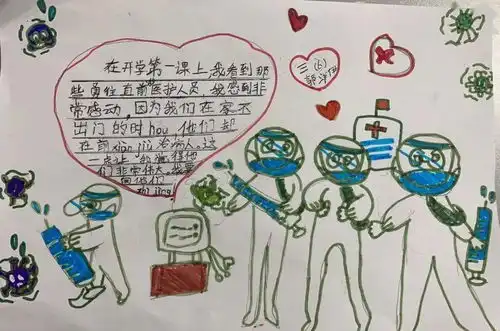 在开学第一课上,我看到那
些勇往直前医护人员,我感到非
常感动,因为我们在家不
出门的时hou,他们却
在前xiàn jiù治病人,这
一点让我觉得他
们非常伟大,我要
向他们
zhì jìng
三(6)